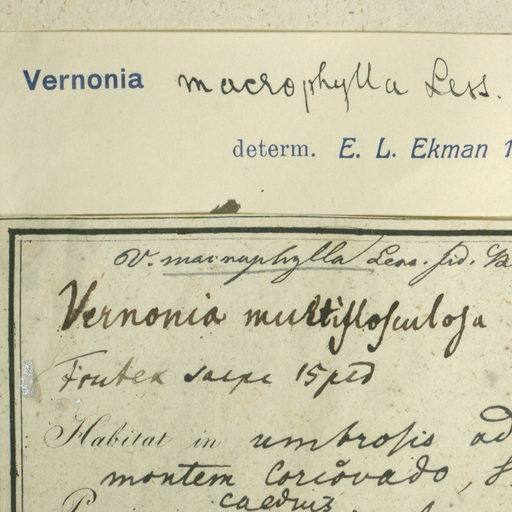 Vernonia macrophylla Less.
determ. E. L. Ekman 1
V. macrophylla Less. fid.
Vernonia multiflosculosa
Frutex saepe 15 ped
Habitat in umbrosis ad
montem Corcovado,
caeduis